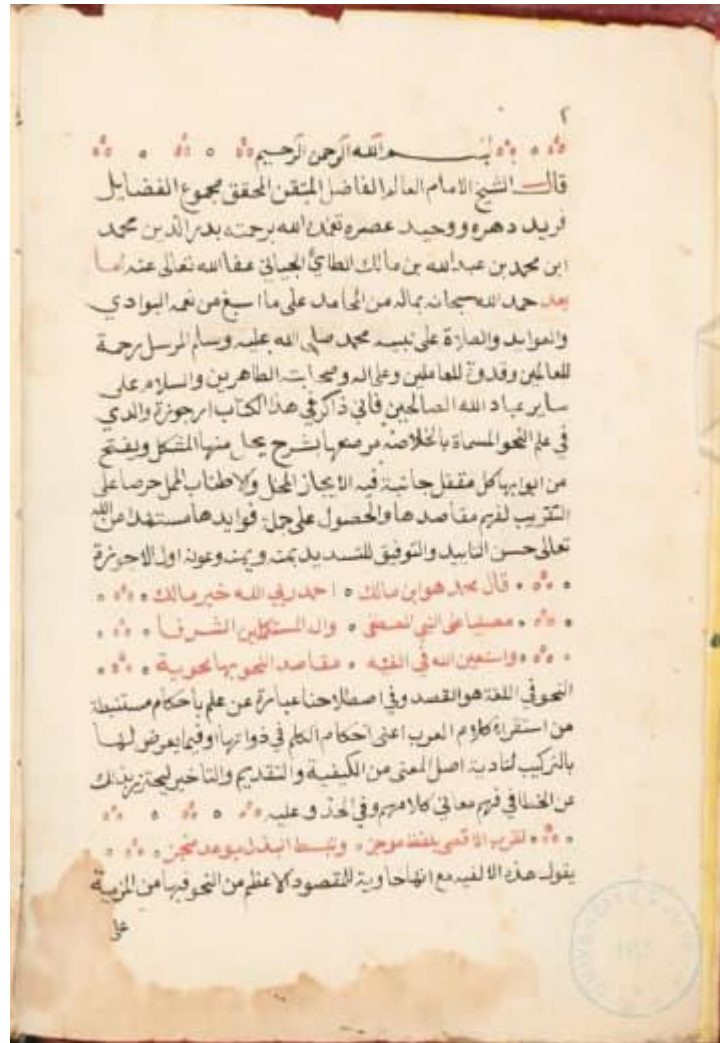 ٢
بسم الله الرحمن الرحيم
قال الشيخ الامام العالم الفاضل المتقن المحقق مجموع الفضايل
فريد دهره ووحيد عصره تغمده الله برحمته بدر الدين محمد
ابن محمد بن عبدالله بن مالك الطائي الجياني عفا الله تعالى عنه اما
بعد حمد الله سبحانه بماله من المحامد على ما اسبغ من نعمه البوادي
والعوايد والصلاة على نبيه محمد صلى الله عليه وسلم المرسل رحمة
للعالمين وقدوة للعاملين وعلى اله وصحابته الطاهرين والسلام على
ساير عباد الله الصالحين فاني ذاكر في هذا الكتاب ارجوزة والدي
في علم النحو المسماة بالخلاصة مرصعها بشرح يحل منها المشكل ويفتح
من ابوابها كل مقفل جانبت فيه الايجاز المخل والاطناب الممل حرصا على
التقريب لفهم مقاصدها والحصول على جل فوايدها مستمدا من الله
تعالى حسن التاييد والتوفيق للتسديد بمنه ويمنه وعونه اول الاجوزة
قال محمد هو ابن مالك احمد ربي الله خير مالك
مصليا على النبي المصطفى واله المستكملين الشرفا
واستعين الله في الفيه مقاصد النحو بها محوية
النحو في اللغة هو القصد وفي اصطلاحنا عبارة عن علم باحكام مستنبطة
من استقراء كلام العرب اعنى احكام الكلم في ذواتها او فيما يعرض لها
بالتركيب لتادية اصل المعنى من الكيفية والتقديم والتاخير ليحترز بذلك
عن الخطا في فهم معاني كلامهم وفي الحذو عليه
تقرب الاقصى بلفظ موجز وتبسط البذل بوعد منجز
يقول هذه الالفيه مع انها حاوية للمقصود الاعظم من النحو فيها من المزية
على